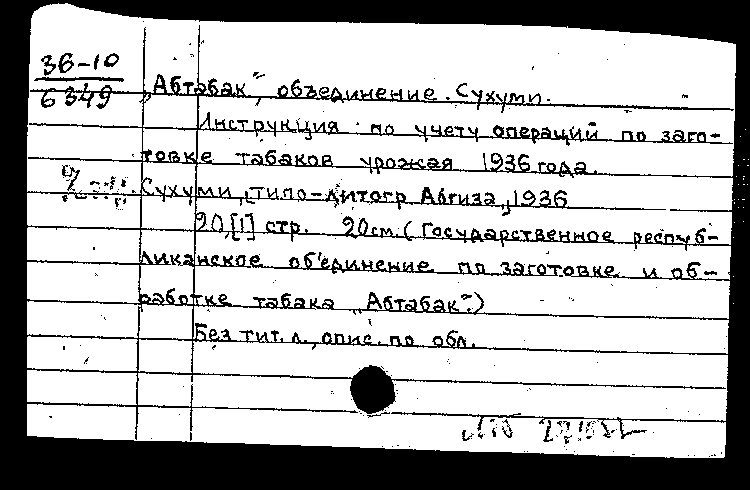 36-10
6349
„Абтабак“, объединение. Сухуми.
Инструкция по учету операций по заго-
товке табаков урожая 1936 года.
Сухуми, [типо-литогр Абгиза], 1936
20, [1] стр. 20 см. (Государственное респуб-
ликанское об'единение по заготовке и об-
работке табака „Абтабак“.)
Без тит. л., опис. по обл.